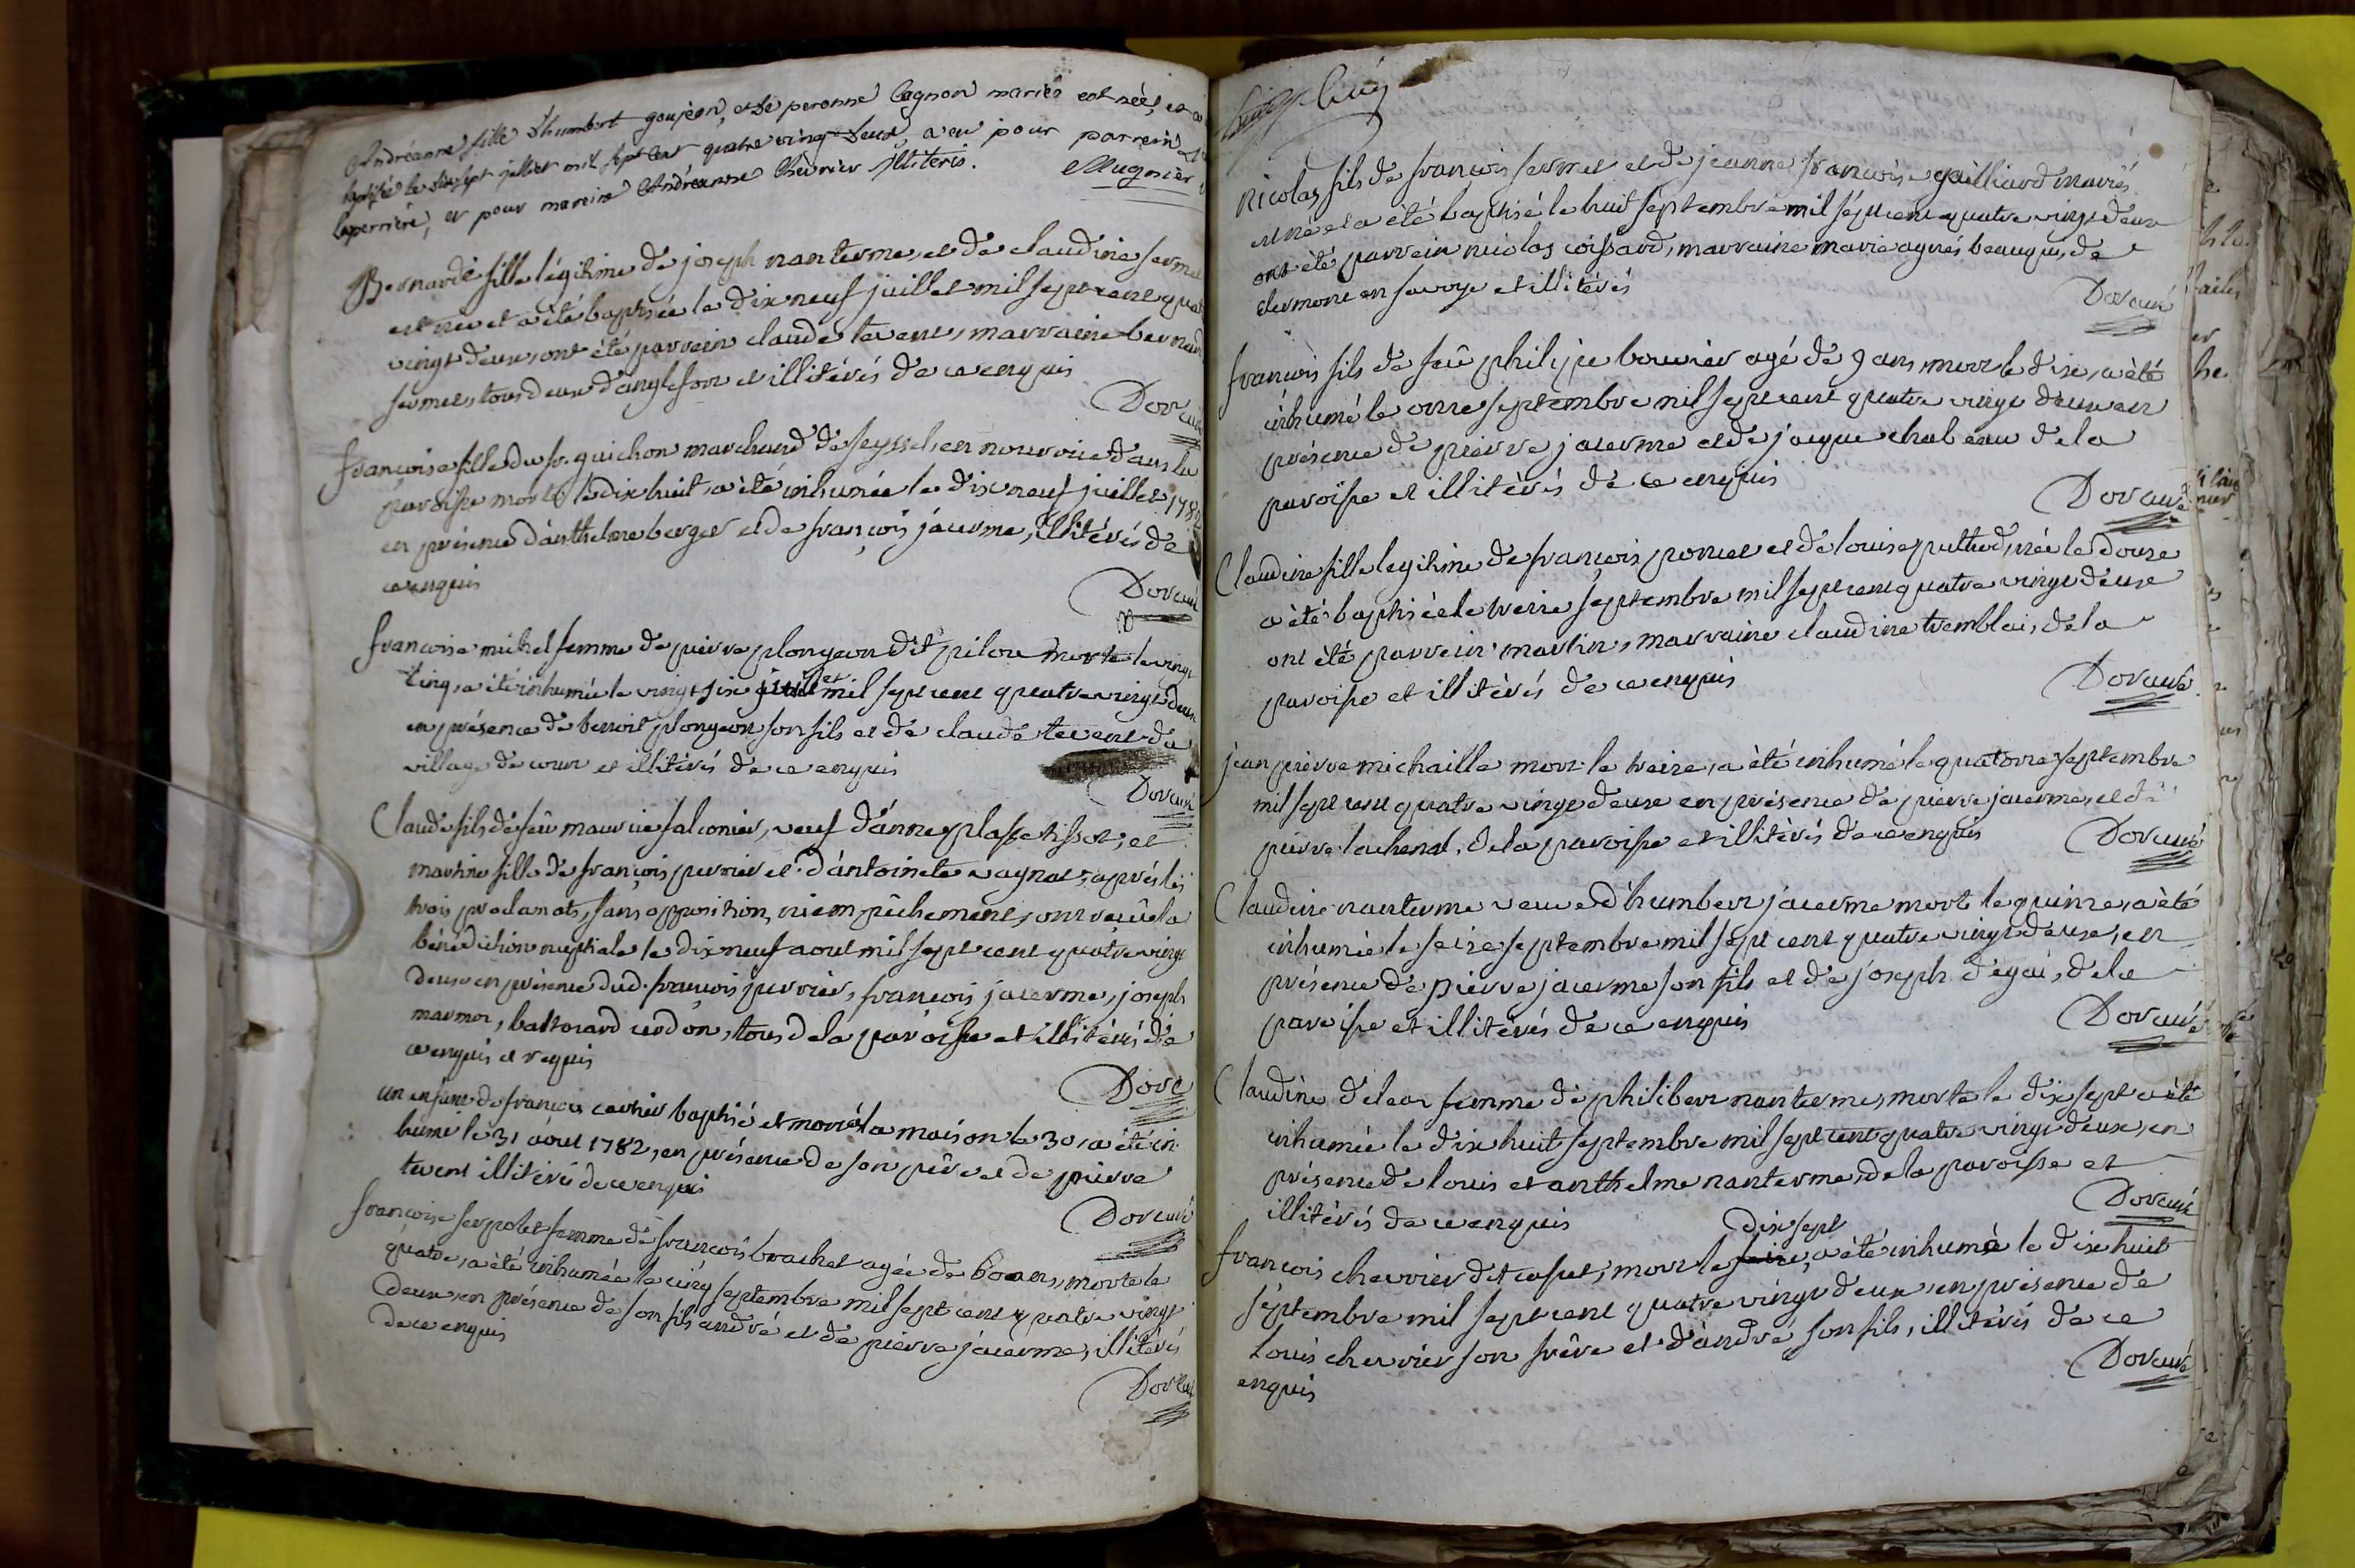 Andréanne fille d'humbert goujon, et de peronne Cagnon mariés est née, et a
baptisé le dix sept juillet mil sept cent quatre vingt deux, a eu pour parrein
laperriere, et pour mareine Andréanne Chêvrier illiteris. Mugnier
Bernarde fille légitime de joseph nanterme, et de claudine serme
est née et a été baptisée le dix neuf juillet mil sept cent quat
vingt deux, ont été parrein claude tevent, marraine bernard
sermet, tous deux d'anglefort et illitérés de ce enquis
Dor curé
françoise fille du sr. guichon marchand de seyssel, en nourrice dans la
paroisse morte le dix huit, a été inhumée le dix neuf juillet 178
en présence d'anthelme berger et de françois jacerme, illitérés de
ce enquis
Dor curé
françoise michel femme de pierre plongeon dit pilou morte le vingt
cinq, a été inhumée le vingt six juillet mil sept cent quatre vingt deux
en présence de benoit plongeon son fils et de claude tevent du
village de cour et illitérés de ce enquis
Dor curé
Claude fils de feû maurice falconier, veuf d'anne plasse tissot, et
martine fille de françois perrier et d'antoinete cagnat, après les
trois proclamats, sans opposition, ni empêchement, ont reçû la
bénédiction nuptiale le dix neuf aout mil sept cent quatre vingt
deux en présence dud. françois perrier, françois jacerme, joseph
marmor, baltazard cerdon, tous de la paroisse et illitérés de
ce enquis et requis
Dor c
un enfant de françois carrier baptisé et mort à la maison le 30, a été in
humé le 31 aout 1782, en présence de son père et de pierre
tevent illitérés de ce enquis
Dor curé
françoise serpolet femme de françois brachet agée de 60 ans, morte le
quatre, a été inhumée le cinq septembre mil sept cent quatre vingt
deux en présence de son fils andré et de pierre jacerme, illitérés
de ce enquis
Dor cur
nicolas fils de françois sermet et de jeanne françoise gailliard mariés
est né et a été baptisé le huit septembre mil sept cent quatre vingt deux
ont été parrein nicolas coissard, marraine marie agnés beauquis, de
clermont en savoye et illitérés
Dor curé
françois fils de feû philipe bouvier agé de 9 ans, mort le dix, a été
inhumé le onze septembre mil sept cent quatre vingt deux en
présence de pierre jacerme et de jacque chabeau de la
paroisse et illitérés de ce enquis
Dor curé
Claudine fille legitime de françois poncet et de louise puthod, née le douze
a été baptisée le treize septembre mil sept cent quatre vingt deux
ont été parrein martin, marraine claudine tremblai, de la
paroisse et illitérés de ce enquis
Dor curé
jean pierre michaille mort le treize, a été inhumé le quatorze septembre
mil sept cent quatre vingt deux en présence de pierre jacerme, et de
pierre lachenal, de la paroisse et illitérés de ce enquis
Dor curé
Claudine nanterme veuve d'humbert jacerme morte le quinze, a été
inhumée le seize septembre mil sept cent quatre vingt deux, en
présence de pierre jacerme son fils et de joseph d'egai, de la
paroisse et illitérés de ce enquis
Dor curé
Claudine delear femme de philibert nanterme, morte le dix sept a été
inhumée le dix huit septembre mil sept cent quatre vingt deux, en
présence de louis et anthelme nanterme, de la paroisse et
illitérés de ce enquis
Dor curé
dix sept
françois chevrier dit caset, mort le seize, a été inhumé le dix huit
septembre mil sept cent quatre vingt deux, en présence de
louis chevrier son frère et d'andré son fils, illitérés de ce
enquis
Dor curé